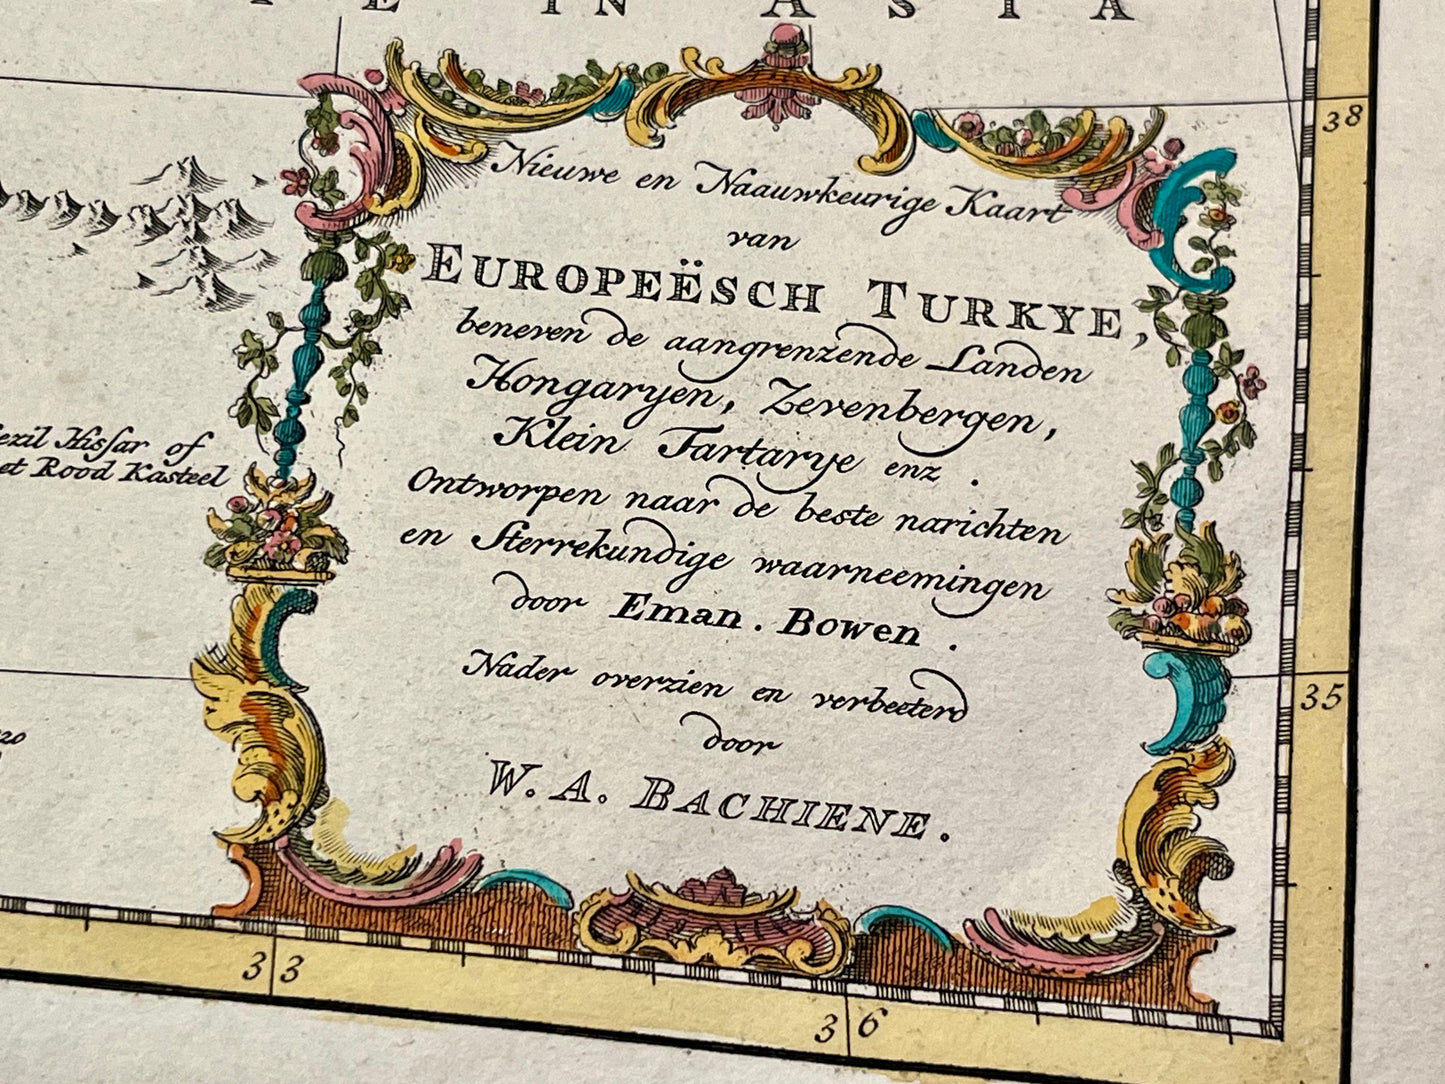 IN ASIA
38
Nieuwe en Naauwkeurige Kaart
van
EUROPEËSCH TURKYE,
beneven de aangrenzende Landen
Hongaryen, Zevenbergen,
Klein Tartarye enz.
Ontworpen naar de beste narichten
en Sterrekundige waarneemingen
door Eman. Bowen.
Nader overzien en verbeeterd
door
W. A. BACHIENE.
Hissar of
Rood Kasteel
35
33
36